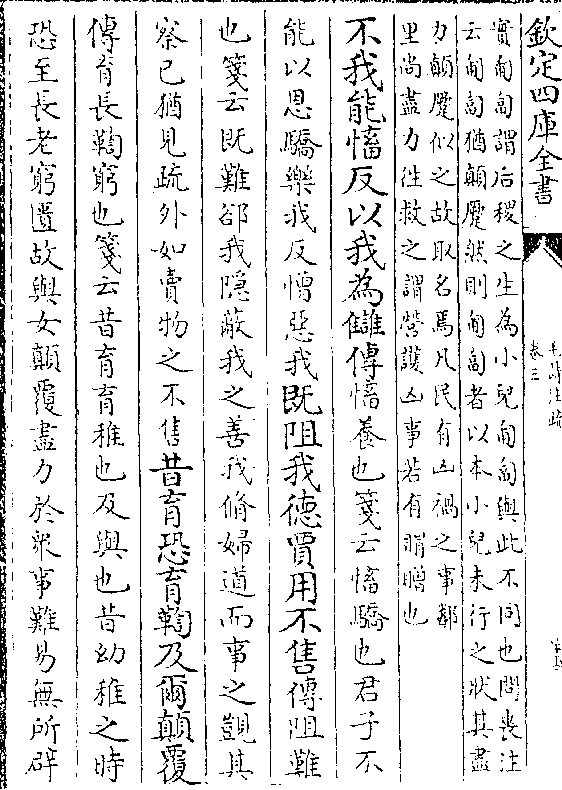 欽定四庫全書
毛詩注疏
卷三
實匍匐謂后稷之生為小兒匍匐與此不同也問喪注
云匍匐猶顛蹷然則匍匐者以本小兒未行之狀其盡
力顛蹷似之故取名焉凡民有凶禍之事鄰
里尚盡力往救之謂營護凶事若有賵贈也
不我能慉反以我為讎傳慉養也箋云慉驕也君子不
能以恩驕樂我反憎惡我既阻我德賈用不售傳阻難
也箋云既難郤我隱蔽我之善我脩婦道而事之覬其
察已猶見疏外如賣物之不售昔育恐育鞫及爾顛覆
傳育長鞫窮也箋云昔育育稚也及與也昔幼稚之時
恐至長老窮匱故與女顛覆盡力於衆事難易無所辟